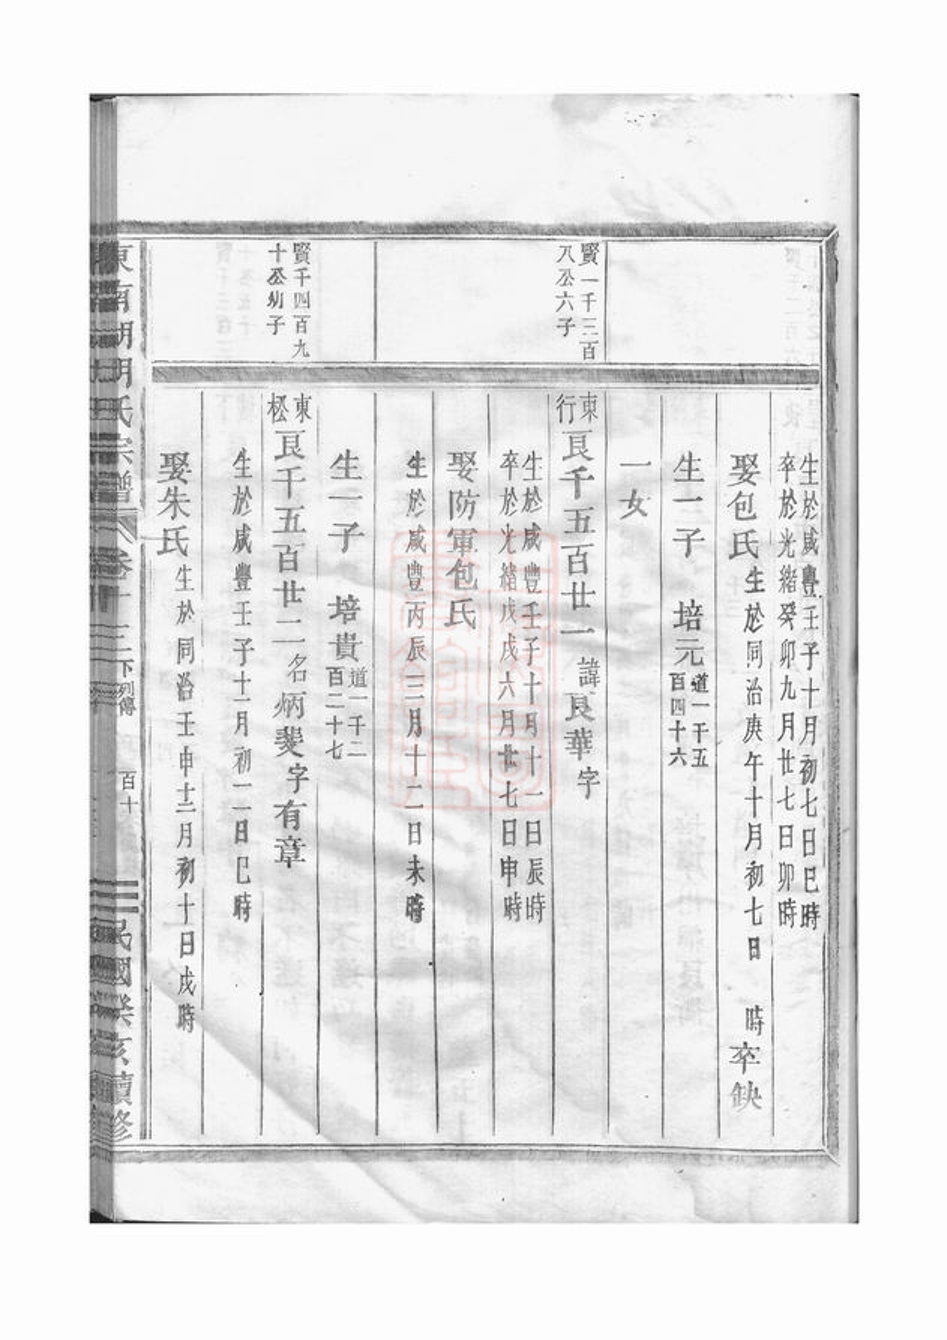 生於咸豐壬子十月初七日巳時
卒於光緒癸卯九月廿七日卯時
娶包氏生於同治庚午十月初七日 時卒缺
生一子 培元道一千五百四十六
一女
賢一千三百
八公六子
東行艮千五百廿一諱艮華字
生於咸豐壬子十月十一日辰時
卒於光緒戊戌六月廿七日申時
娶防軍包氏
生於咸豐丙辰三月十二日未時
生一子 培貴道一千二百二十七
賢千四百九
十公幼子
東松艮千五百廿二名炳斐字有章
生於咸豐壬子十一月初二日巳時
娶朱氏生於同治壬申十二月初十日戌時
東南湖胡氏宗譜 卷十三 下列傳 百十 民國癸亥續修